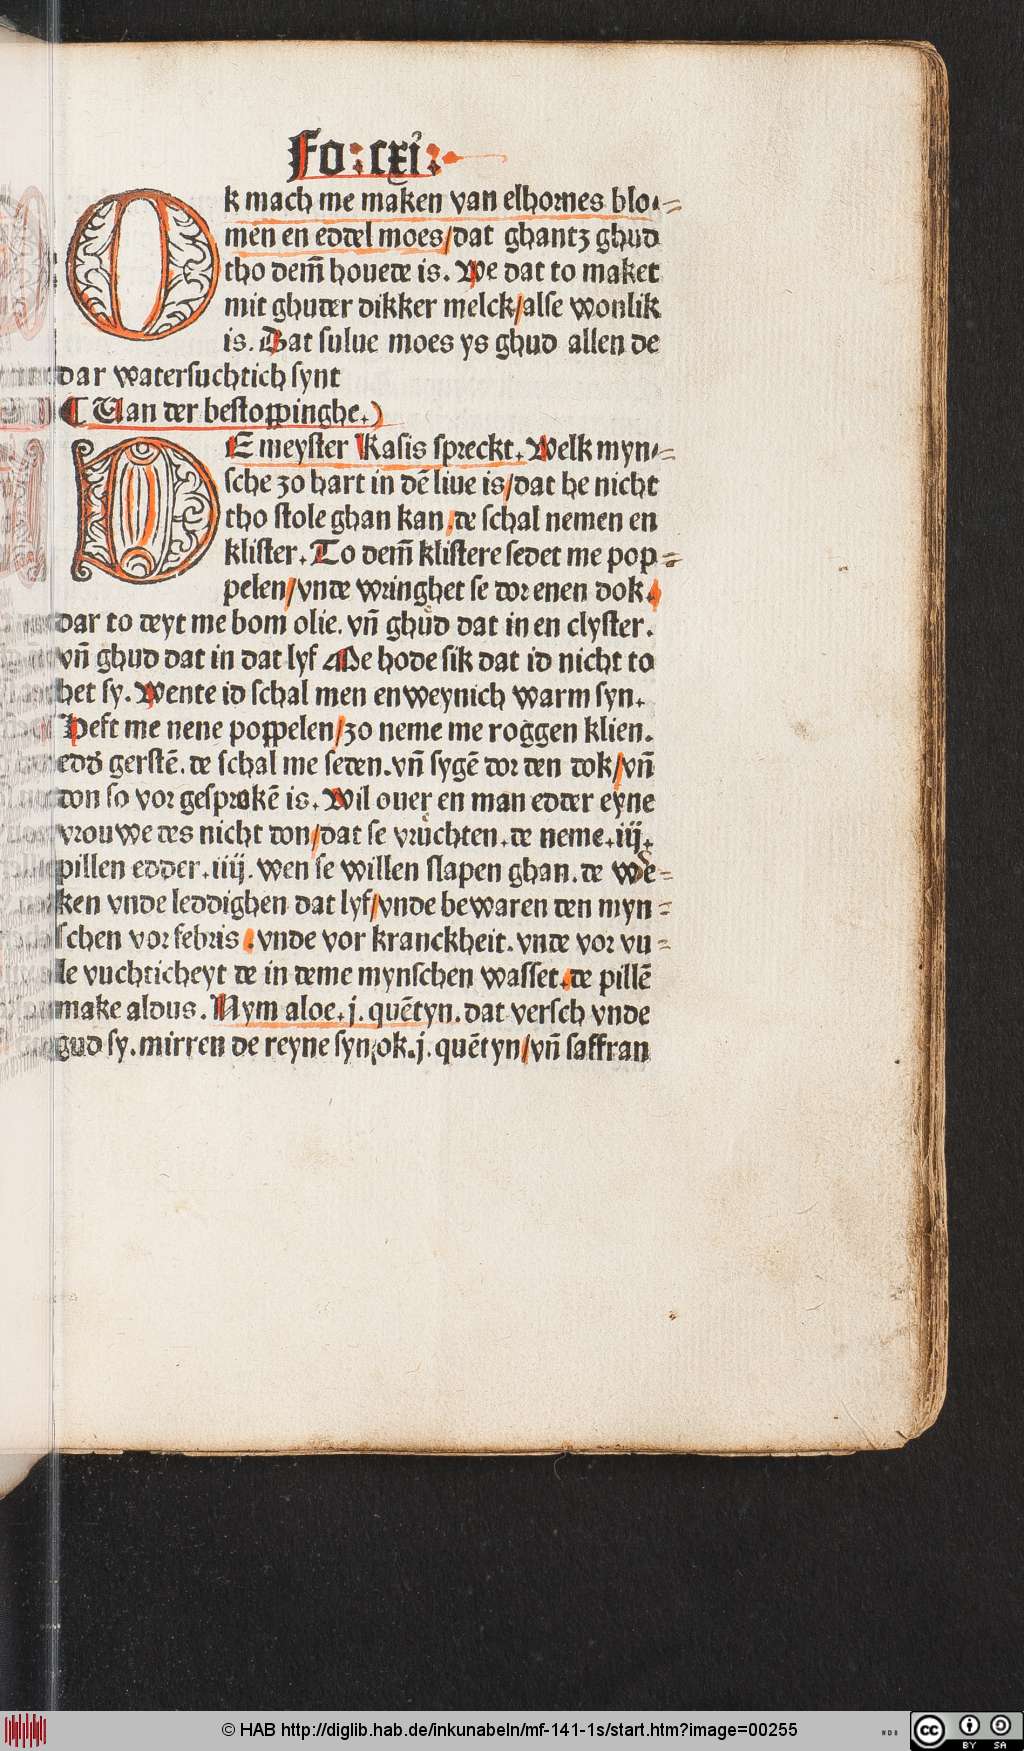 Fo: cxi:
Ok mach me maken van elhornes blo⸗
men en eddel moes/dat ghantz ghud
tho dem̄ houede is. We dat to maket
mit ghuder dikker melck/alse wonlik
is. Dat sulue moes ys ghud allen de
dar watersuchtich synt
¶ Uan der bestoppinghe.)
DE meyster Rasis spreckt. Welk myn⸗
sche zo hart in dē liue is/dat he nicht
tho stole ghan kan, de schal nemen en
klister. To dem̄ klistere sedet me pop⸗
pelen/vnde wringhet se dor enen dok.
dar to deyt me bom olie. vn̄ ghuͦd dat in en clyster.
vn̄ ghud dat in dat lyf Me hode sik dat id nicht to
het sy. Wente id schal men en weynich warm syn.
Heft me nene poppelen/zo neme me roggen klien.
edd' gerstē. de schal me seden. vn̄ sygē dor den dok/vn̄
don so vor gesprokē is. Wil ouer en man edder eyne
vrouwe des nicht don/dat se vruͦchten. de neme. iij.
pillen edder. iiij. wen se willen slapen ghan. de we⸗
ken vnde leddighen dat lyf/vnde bewaren den myn⸗
schen vor febris. vnde vor kranckheit. vnde vor vu⸗
le vuchticheyt de in deme mynschen wasset. de pillē
make aldus. Nym aloe. j. quētyn. dat versch vnde
gud sy. mirren de reyne syn, ok. j. quētyn/vn̄ saffran
© HAB http://diglib.hab.de/inkunabeln/mf-141-1s/start.htm?image=00255
WDB
cc BY SA